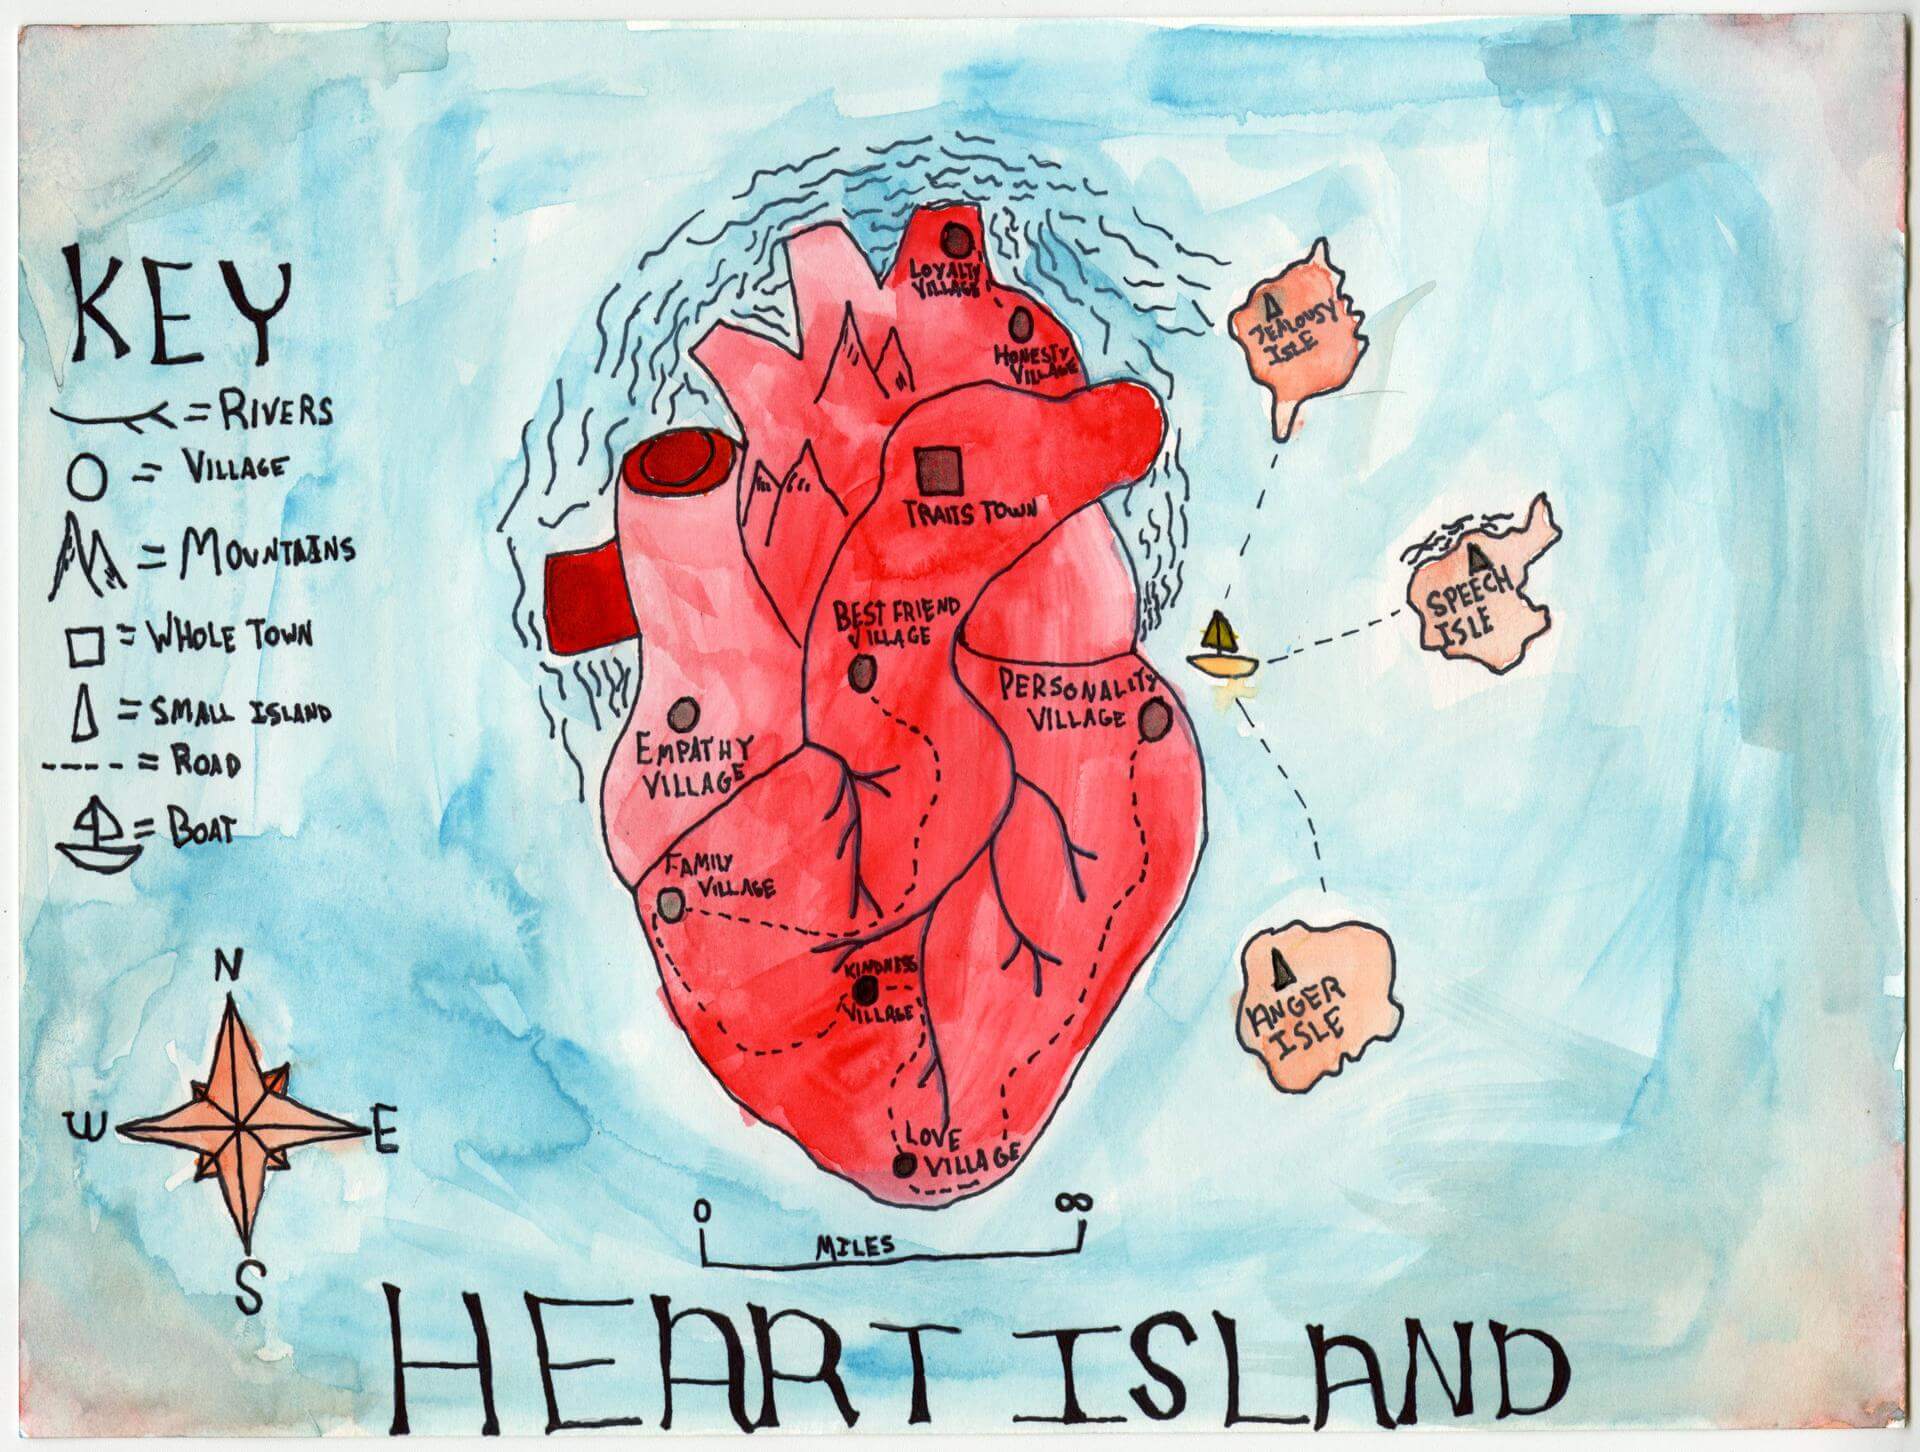 KEY
= RIVERS
= VILLAGE
= MOUNTAINS
= WHOLE TOWN
= SMALL ISLAND
= ROAD
= BOAT
N
W
E
S
LOYALTY
VILLAGE
HONESTY
VILLAGE
TRAITS TOWN
BEST FRIEND
VILLAGE
PERSONALITY
VILLAGE
EMPATHY
VILLAGE
FAMILY
VILLAGE
KINDNESS
VILLAGE
LOVE
VILLAGE
JEALOUSY
ISLE
SPEECH
ISLE
ANGER
ISLE
0
∞
MILES
HEART ISLAND